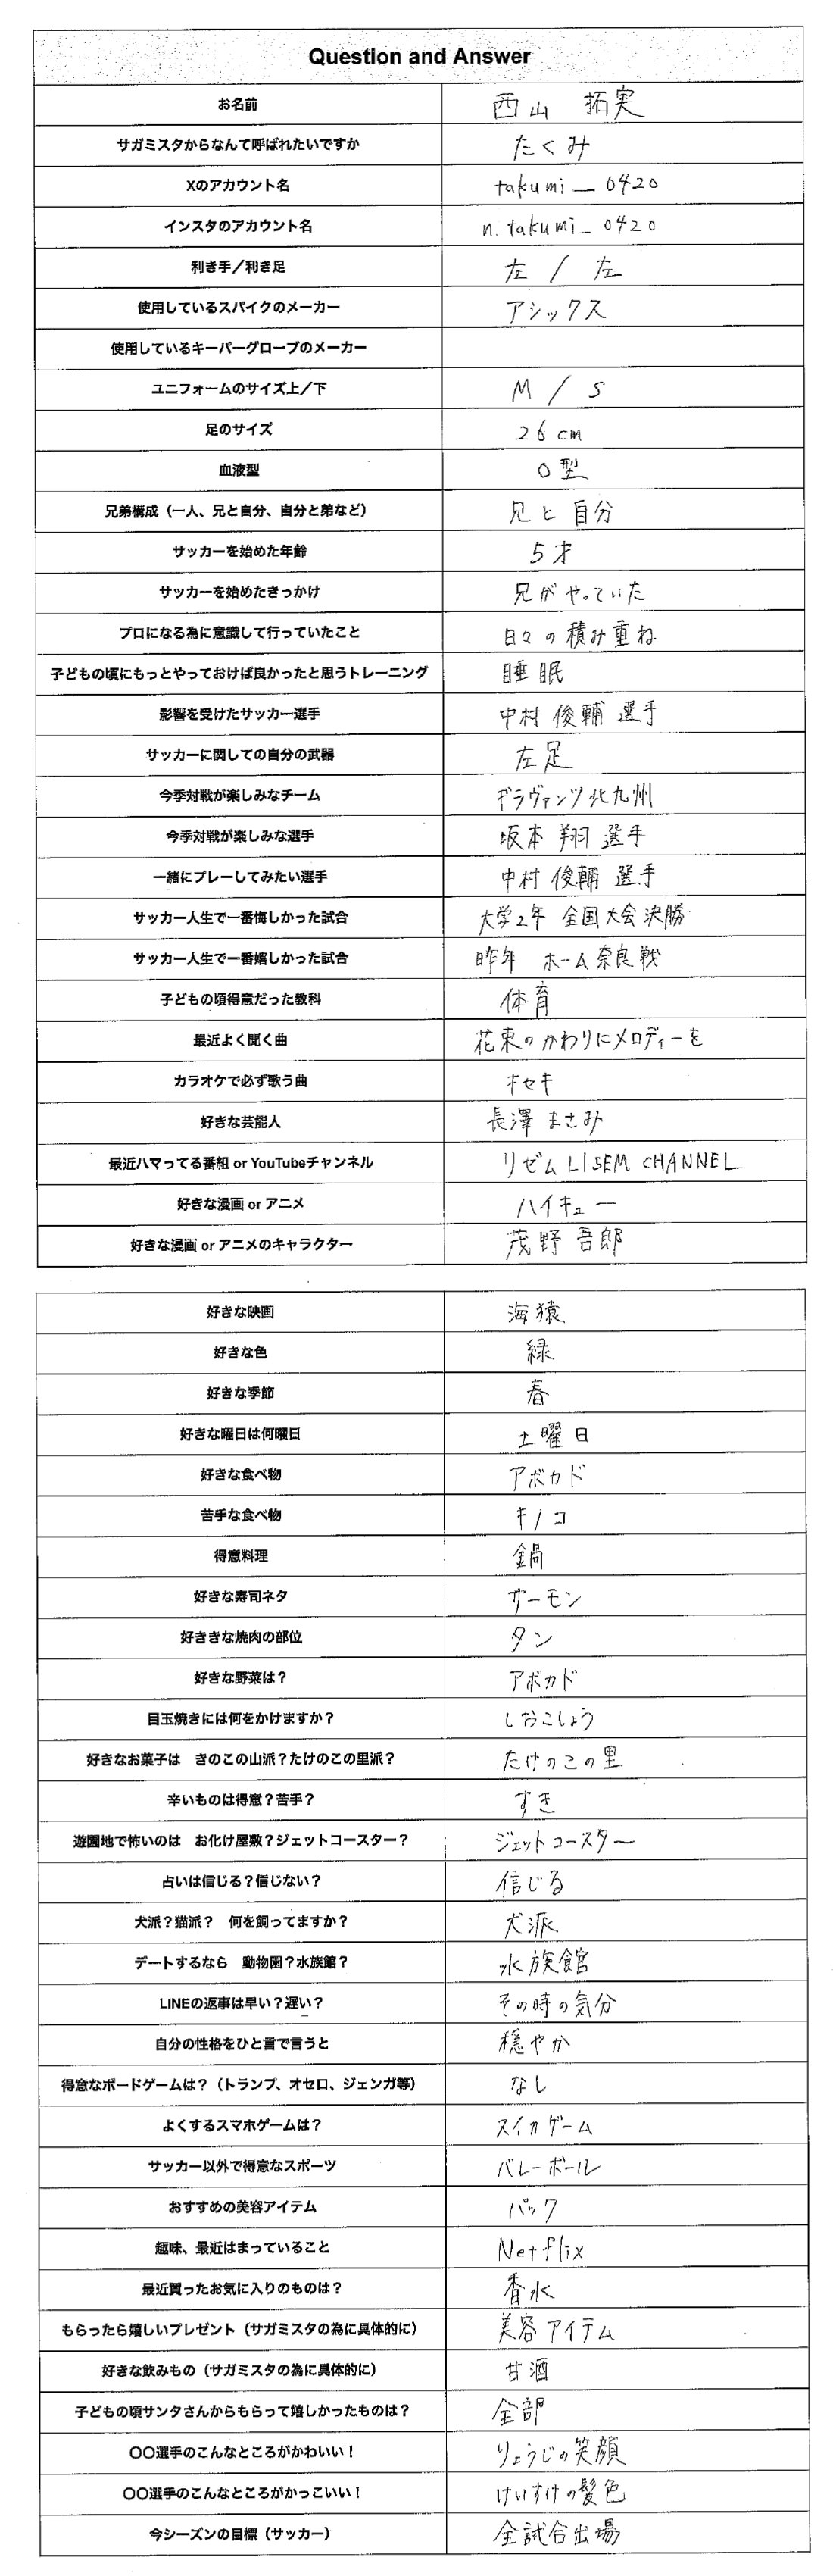 Question and Answer
お名前 西山 拓実
サガミスタからなんて呼ばれたいですか たくみ
Xのアカウント名 takumi_0420
インスタのアカウント名 n.takumi_0420
利き手／利き足 左 / 左
使用しているスパイクのメーカー アシックス
使用しているキーパーグローブのメーカー
ユニフォームのサイズ上／下 M / S
足のサイズ 26cm
血液型 O型
兄弟構成（一人、兄と自分、自分と弟など） 兄と自分
サッカーを始めた年齢 5才
サッカーを始めたきっかけ 兄がやっていた
プロになる為に意識して行っていたこと 日々の積み重ね
子どもの頃にもっとやっておけば良かったと思うトレーニング 睡眠
影響を受けたサッカー選手 中村俊輔選手
サッカーに関しての自分の武器 左足
今季対戦が楽しみなチーム ギラヴァンツ北九州
今季対戦が楽しみな選手 坂本翔選手
一緒にプレーしてみたい選手 中村俊輔選手
サッカー人生で一番悔しかった試合 大学2年 全国大会決勝
サッカー人生で一番嬉しかった試合 昨年 ホーム奈良戦
子どもの頃得意だった教科 体育
最近よく聞く曲 花束のかわりにメロディーを
カラオケで必ず歌う曲 キセキ
好きな芸能人 長澤まさみ
最近ハマってる番組 or YouTubeチャンネル リゼム LISEM CHANNEL
好きな漫画 or アニメ ハイキュー
好きな漫画 or アニメのキャラクター 茂野吾郎
好きな映画 海猿
好きな色 緑
好きな季節 春
好きな曜日は何曜日 土曜日
好きな食べ物 アボカド
苦手な食べ物 キノコ
得意料理 鍋
好きな寿司ネタ サーモン
好ききな焼肉の部位 タン
好きな野菜は？ アボカド
目玉焼きには何をかけますか？ しおこしょう
好きなお菓子は きのこの山派？たけのこの里派？ たけのこの里
辛いものは得意？苦手？ すき
遊園地で怖いのは お化け屋敷？ジェットコースター？ ジェットコースター
占いは信じる？信じない？ 信じる
犬派？猫派？ 何を飼ってますか？ 犬派
デートするなら 動物園？水族館？ 水族館
LINEの返事は早い？遅い？ その時の気分
自分の性格をひと言で言うと 穏やか
得意なボードゲームは？（トランプ、オセロ、ジェンガ等） なし
よくするスマホゲームは？ スイカゲーム
サッカー以外で得意なスポーツ バレーボール
おすすめの美容アイテム パック
趣味、最近はまっていること Netflix
最近買ったお気に入りのものは？ 香水
もらったら嬉しいプレゼント（サガミスタの為に具体的に） 美容アイテム
好きな飲みもの（サガミスタの為に具体的に） 甘酒
子どもの頃サンタさんからもらって嬉しかったものは？ 全部
〇〇選手のこんなところがかわいい！ りょうじの笑顔
〇〇選手のこんなところがかっこいい！ けいすけの髪色
今シーズンの目標（サッカー） 全試合出場